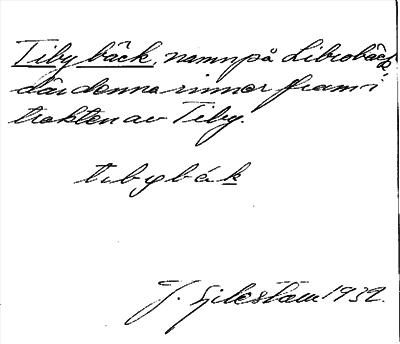 Tibybäck, namn på Librobäck,
där denna rinner fram i
trakten av Tiby.
tibybäk
J. Gilestam 1932.